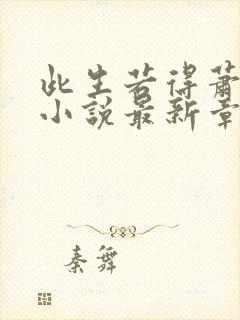 此生若得萧
小说最新章
秦舞